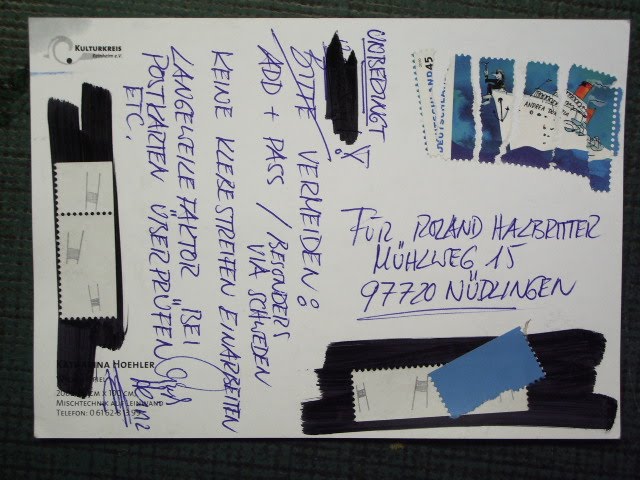 KULTURKREIS
UNBEDINGT
BITTE VERMEIDEN:
ADD + PASS / BESONDERS
VIA SCHWEDEN
KEINE KLEBESTREIFEN EINARBEITEN
LANGEWEILE FAKTOR BEI
POSTKARTEN ÜBERPRÜFEN
ETC.
DEUTSCHLAND 45
FÜR ROLAND HALBRITTER
MÜHLWEG 15
97720 NÜDLINGEN
HOEHLER
MISCHTECHNIK AUF LEINWAND
TELEFON: